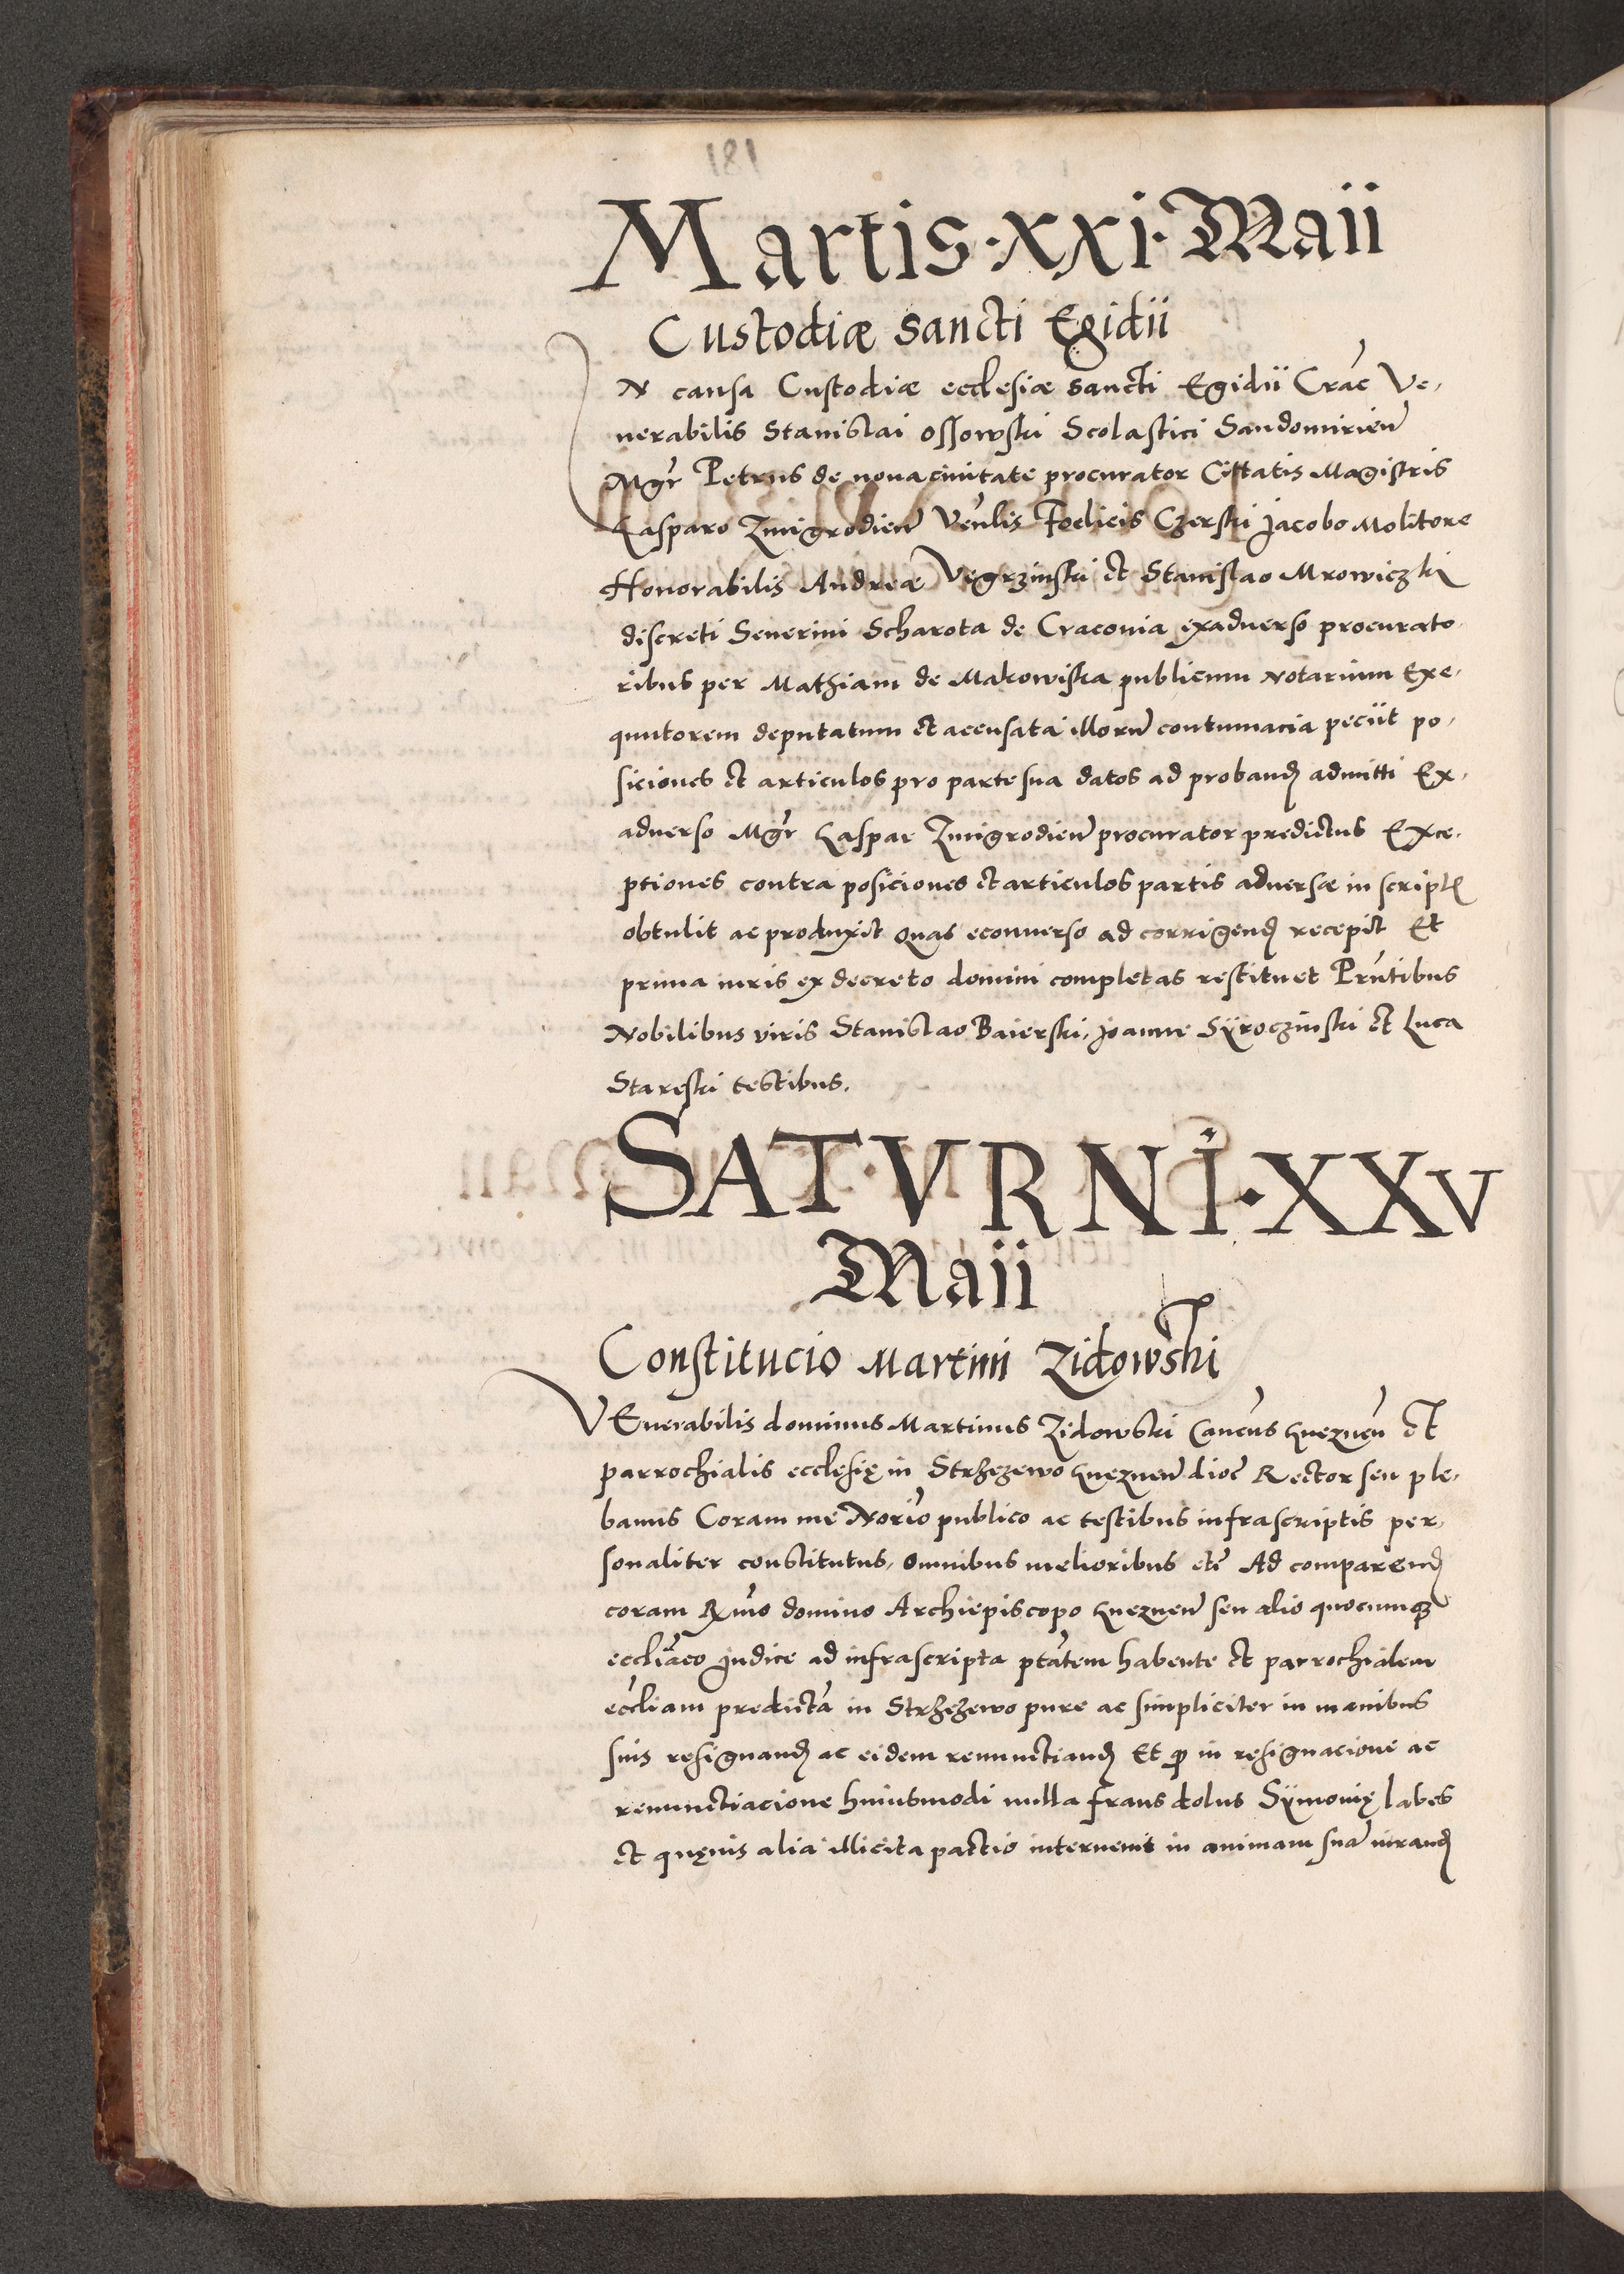 Martis · xxi · Maii
Custodiæ sancti Egidii
IN causa Custodiæ ecclesiæ sancti Egidii Crac̄ Ve-
nerabilis Stanislai Ossowski Scolastici Sandomirien̄
Mgr̄ Petrus de noua ciuitate procurator Cittatis Magistris
Gasparo Zmigrodien̄ Ven̄lis Foelicis Czerski Jacobo Molitore
Honorabilis Andreæ Vęgrzinski et Stanislao Mrowiczki
discreti Seuerini Scharota de Craconia exaduerso procurato-
ribus per Mathiam de Makowiska publicum Notarium Exe-
quutorem deputatum et accusata illorū contumacia peciit po-
siciones et articulos pro parte sua datos ad proband̄ admitti Ex-
aduerso Mgr̄ Gaspar Zmigrodien̄ procurator predictus Exce-
ptiones contra posiciones et articulos partis aduersæ in script̄
obtulit ac produxit quas econuerso ad corrigend̄ recepit Et
prima iuris ex decreto domini completas restituet Prn̄tibus
Nobilibus viris Stanislao Baierski, Joanne Sÿroczinski et Luca
Staręski testibus.
SATVRNI · XXV
Maii
Constitucio Martini Zidowski
VEnerabilis dominus Martinus Zidowski Canc̄us Gneznen̄ et
parrochialis ecclesię in Strzezewo Gneznen̄ dioc̄ Rector seu ple-
banus Coram me Nōrio publico ac testibus infrascriptis per-
sonaliter constitutus, omnibus melioribus etc̄ Ad comparend̄
coram Rx̄mo domino Archiepiscopo Gneznen̄ seu alio quocumqȝ
eccliāco Judice ad infrascripta ptātem habente et parrochialem
eccl̄iam predictā in Strzezewo pure ac simpliciter in manibus
suis resignand̄ ac eidem renunctiand̄ Et ꝙ in resignacione ac
renunctiacione huiusmodi nulla fraus dolus Sÿmonię labes
et quęuis alia illicita pactio interuenit in animam suā iurand̄